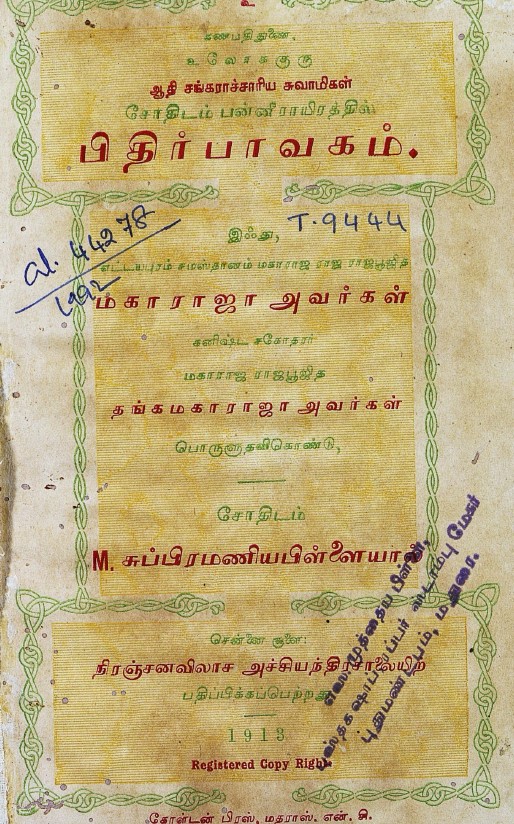 உ
கணபதி துணை.
உலோககுரு
ஆதி சங்கராச்சாரிய சுவாமிகள்
சோதிடம் பன்னீராயிரத்தில்
பிதிர்பாவகம்.
இஃது,
T.9444
al. 44278
1992
எட்டயபுரம் சமஸ்தானம் மகாராஜ ராஜ ராஜபூஜித
மகாராஜா அவர்கள்
கனிஷ்ட சகோதரர்
மகாராஜ ராஜபூஜித
தங்கமகாராஜா அவர்கள்
பொருளுதவிகொண்டு,
சோதிடம்
M. சுப்பிரமணியபிள்ளையால்
சென்னை சூளை:
நிரஞ்சனவிலாச அச்சியந்திரசாலையிற்
பதிப்பிக்கப்பெற்றது
1913
Registered Copy Right.
புஸ்தகஷாப் ரப்பர் ஸ்டாம்பு மேகர்
புதுமண்டபம், மதுரை.
கோள்டன் பிரஸ், மதராஸ். என். சி.